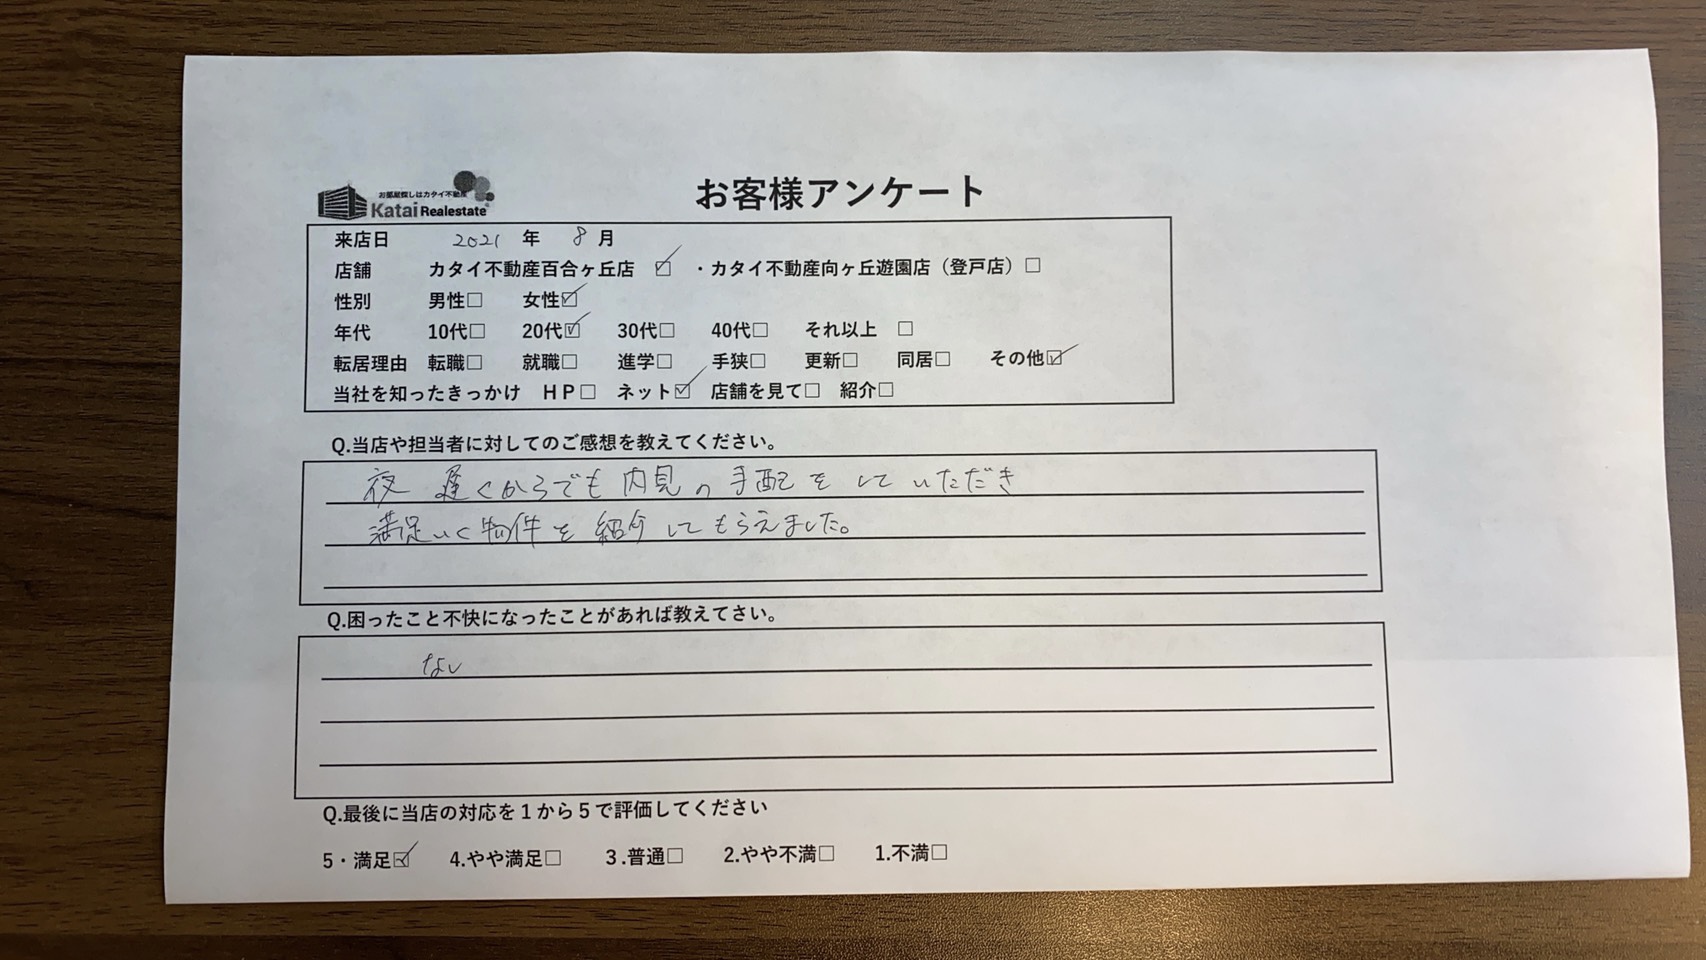 お部屋探しはカタイ不動産
Katai Realestate
お客様アンケート
来店日 2021 年 8 月
店舗 カタイ不動産百合ヶ丘店 ☑ ・カタイ不動産向ヶ丘遊園店（登戸店）□
性別 男性□ 女性☑
年代 10代□ 20代☑ 30代□ 40代□ それ以上 □
転居理由 転職□ 就職□ 進学□ 手狭□ 更新□ 同居□ その他☑
当社を知ったきっかけ ＨＰ□ ネット☑ 店舗を見て□ 紹介□
Q.当店や担当者に対してのご感想を教えてください。
夜 遅くからでも内見の手配をしていただき
満足いく物件を紹介してもらえました。
Q.困ったこと不快になったことがあれば教えてさい。
なし
Q.最後に当店の対応を１から５で評価してください
5・満足☑ 4.やや満足□ ３.普通□ 2.やや不満□ 1.不満□